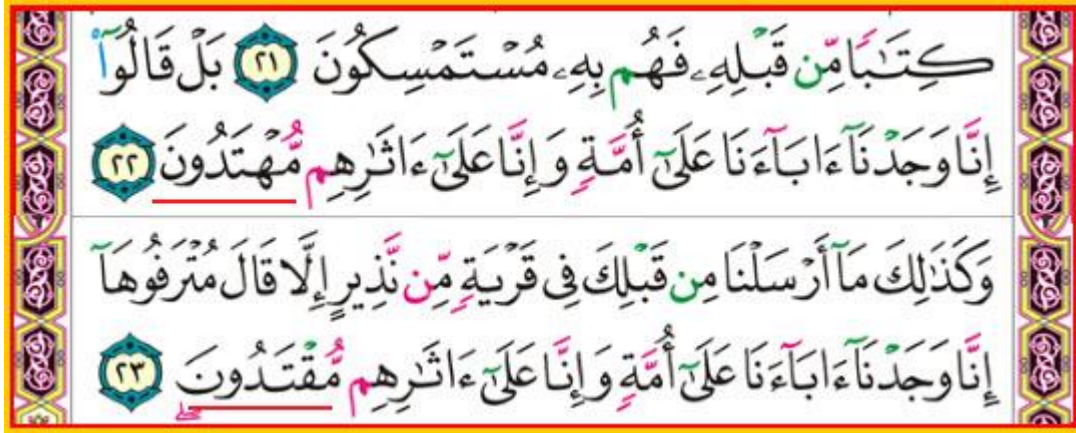 كِتَٰبًا مِّن قَبْلِهِۦ فَهُم بِهِۦ مُسْتَمْسِكُونَ ٢١ بَلْ قَالُوٓا۟
إِنَّا وَجَدْنَآ ءَابَآءَنَا عَلَىٰٓ أُمَّةٍ وَإِنَّا عَلَىٰٓ ءَاثَٰرِهِم مُّهْتَدُونَ ٢٢
وَكَذَٰلِكَ مَآ أَرْسَلْنَا مِن قَبْلِكَ فِى قَرْيَةٍ مِّن نَّذِيرٍ إِلَّا قَالَ مُتْرَفُوهَآ
إِنَّا وَجَدْنَآ ءَابَآءَنَا عَلَىٰٓ أُمَّةٍ وَإِنَّا عَلَىٰٓ ءَاثَٰرِهِم مُّقْتَدُونَ ٢٣